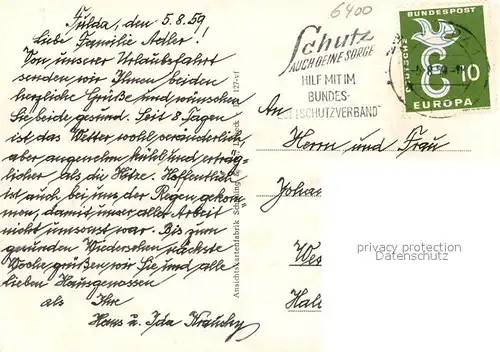 Fulda, den 5.8.59
Liebe Familie Adler!
Von unserer Urlaubsfahrt
senden wir Ihnen beiden
herzliche Grüße und wünschen
Sie beide gesund. Seit 8 Tagen
ist das Wetter wohl veränderlich,
aber angenehm kühl und erträg-
licher als die Hitze. Hoffentlich
ist auch bei uns der Regen gekom-
men, damit unser aller Arbeit
nicht umsonst war. Bis zum
gesunden Wiedersehen nächste
Woche grüßen wir Sie und alle
lieben Hausgenossen
als Ihre
Hans u. Ida
Ansichtskartenfabrik
127-vi
6400
Schutz
AUCH DEINE SORGE
HILF MIT IM
BUNDES-
LUFTSCHUTZVERBAND
DEUTSCHE BUNDESPOST
10
EUROPA
An
Herrn und Frau
Joha
Wes
Hal
privacy protection
Keine Originalbestandteile